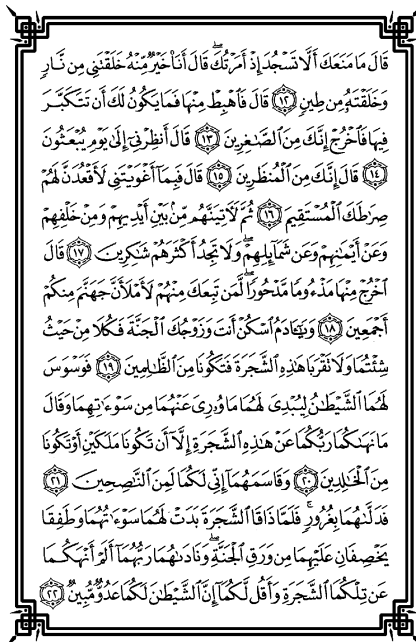 قَالَ مَا مَنَعَكَ أَلَّا تَسْجُدَ إِذْ أَمَرْتُكَ ۖ قَالَ أَنَا۠ خَيْرٌ مِّنْهُ خَلَقْتَنِى مِن نَّارٍ
وَخَلَقْتَهُۥ مِن طِينٍ ١٢ قَالَ فَٱهْبِطْ مِنْهَا فَمَا يَكُونُ لَكَ أَن تَتَكَبَّرَ
فِيهَا فَٱخْرُجْ إِنَّكَ مِنَ ٱلصَّـٰغِرِينَ ١٣ قَالَ أَنظِرْنِىٓ إِلَىٰ يَوْمِ يُبْعَثُونَ
١٤ قَالَ إِنَّكَ مِنَ ٱلْمُنظَرِينَ ١٥ قَالَ فَبِمَآ أَغْوَيْتَنِى لَأَقْعُدَنَّ لَهُمْ
صِرَٰطَكَ ٱلْمُسْتَقِيمَ ١٦ ثُمَّ لَـَٔاتِيَنَّهُم مِّنۢ بَيْنِ أَيْدِيهِمْ وَمِنْ خَلْفِهِمْ
وَعَنْ أَيْمَـٰنِهِمْ وَعَن شَمَآئِلِهِمْ ۖ وَلَا تَجِدُ أَكْثَرَهُمْ شَـٰكِرِينَ ١٧ قَالَ
ٱخْرُجْ مِنْهَا مَذْءُومًا مَّدْحُورًا ۖ لَّمَن تَبِعَكَ مِنْهُمْ لَأَمْلَأَنَّ جَهَنَّمَ مِنكُمْ
أَجْمَعِينَ ١٨ وَيَـٰٓـَٔادَمُ ٱسْكُنْ أَنتَ وَزَوْجُكَ ٱلْجَنَّةَ فَكُلَا مِنْ حَيْثُ
شِئْتُمَا وَلَا تَقْرَبَا هَـٰذِهِ ٱلشَّجَرَةَ فَتَكُونَا مِنَ ٱلظَّـٰلِمِينَ ١٩ فَوَسْوَسَ
لَهُمَا ٱلشَّيْطَـٰنُ لِيُبْدِىَ لَهُمَا مَا وُۥرِىَ عَنْهُمَا مِن سَوْءَٰتِهِمَا وَقَالَ
مَا نَهَىٰكُمَا رَبُّكُمَا عَنْ هَـٰذِهِ ٱلشَّجَرَةِ إِلَّآ أَن تَكُونَا مَلَكَيْنِ أَوْ تَكُونَا
مِنَ ٱلْخَـٰلِدِينَ ٢٠ وَقَاسَمَهُمَآ إِنِّى لَكُمَا لَمِنَ ٱلنَّـٰصِحِينَ ٢١
فَدَلَّىٰهُمَا بِغُرُورٍ ۚ فَلَمَّا ذَاقَا ٱلشَّجَرَةَ بَدَتْ لَهُمَا سَوْءَٰتُهُمَا وَطَفِقَا
يَخْصِفَانِ عَلَيْهِمَا مِن وَرَقِ ٱلْجَنَّةِ ۖ وَنَادَىٰهُمَا رَبُّهُمَآ أَلَمْ أَنْهَكُمَا
عَن تِلْكُمَا ٱلشَّجَرَةِ وَأَقُل لَّكُمَآ إِنَّ ٱلشَّيْطَـٰنَ لَكُمَا عَدُوٌّ مُّبِينٌ ٢٢